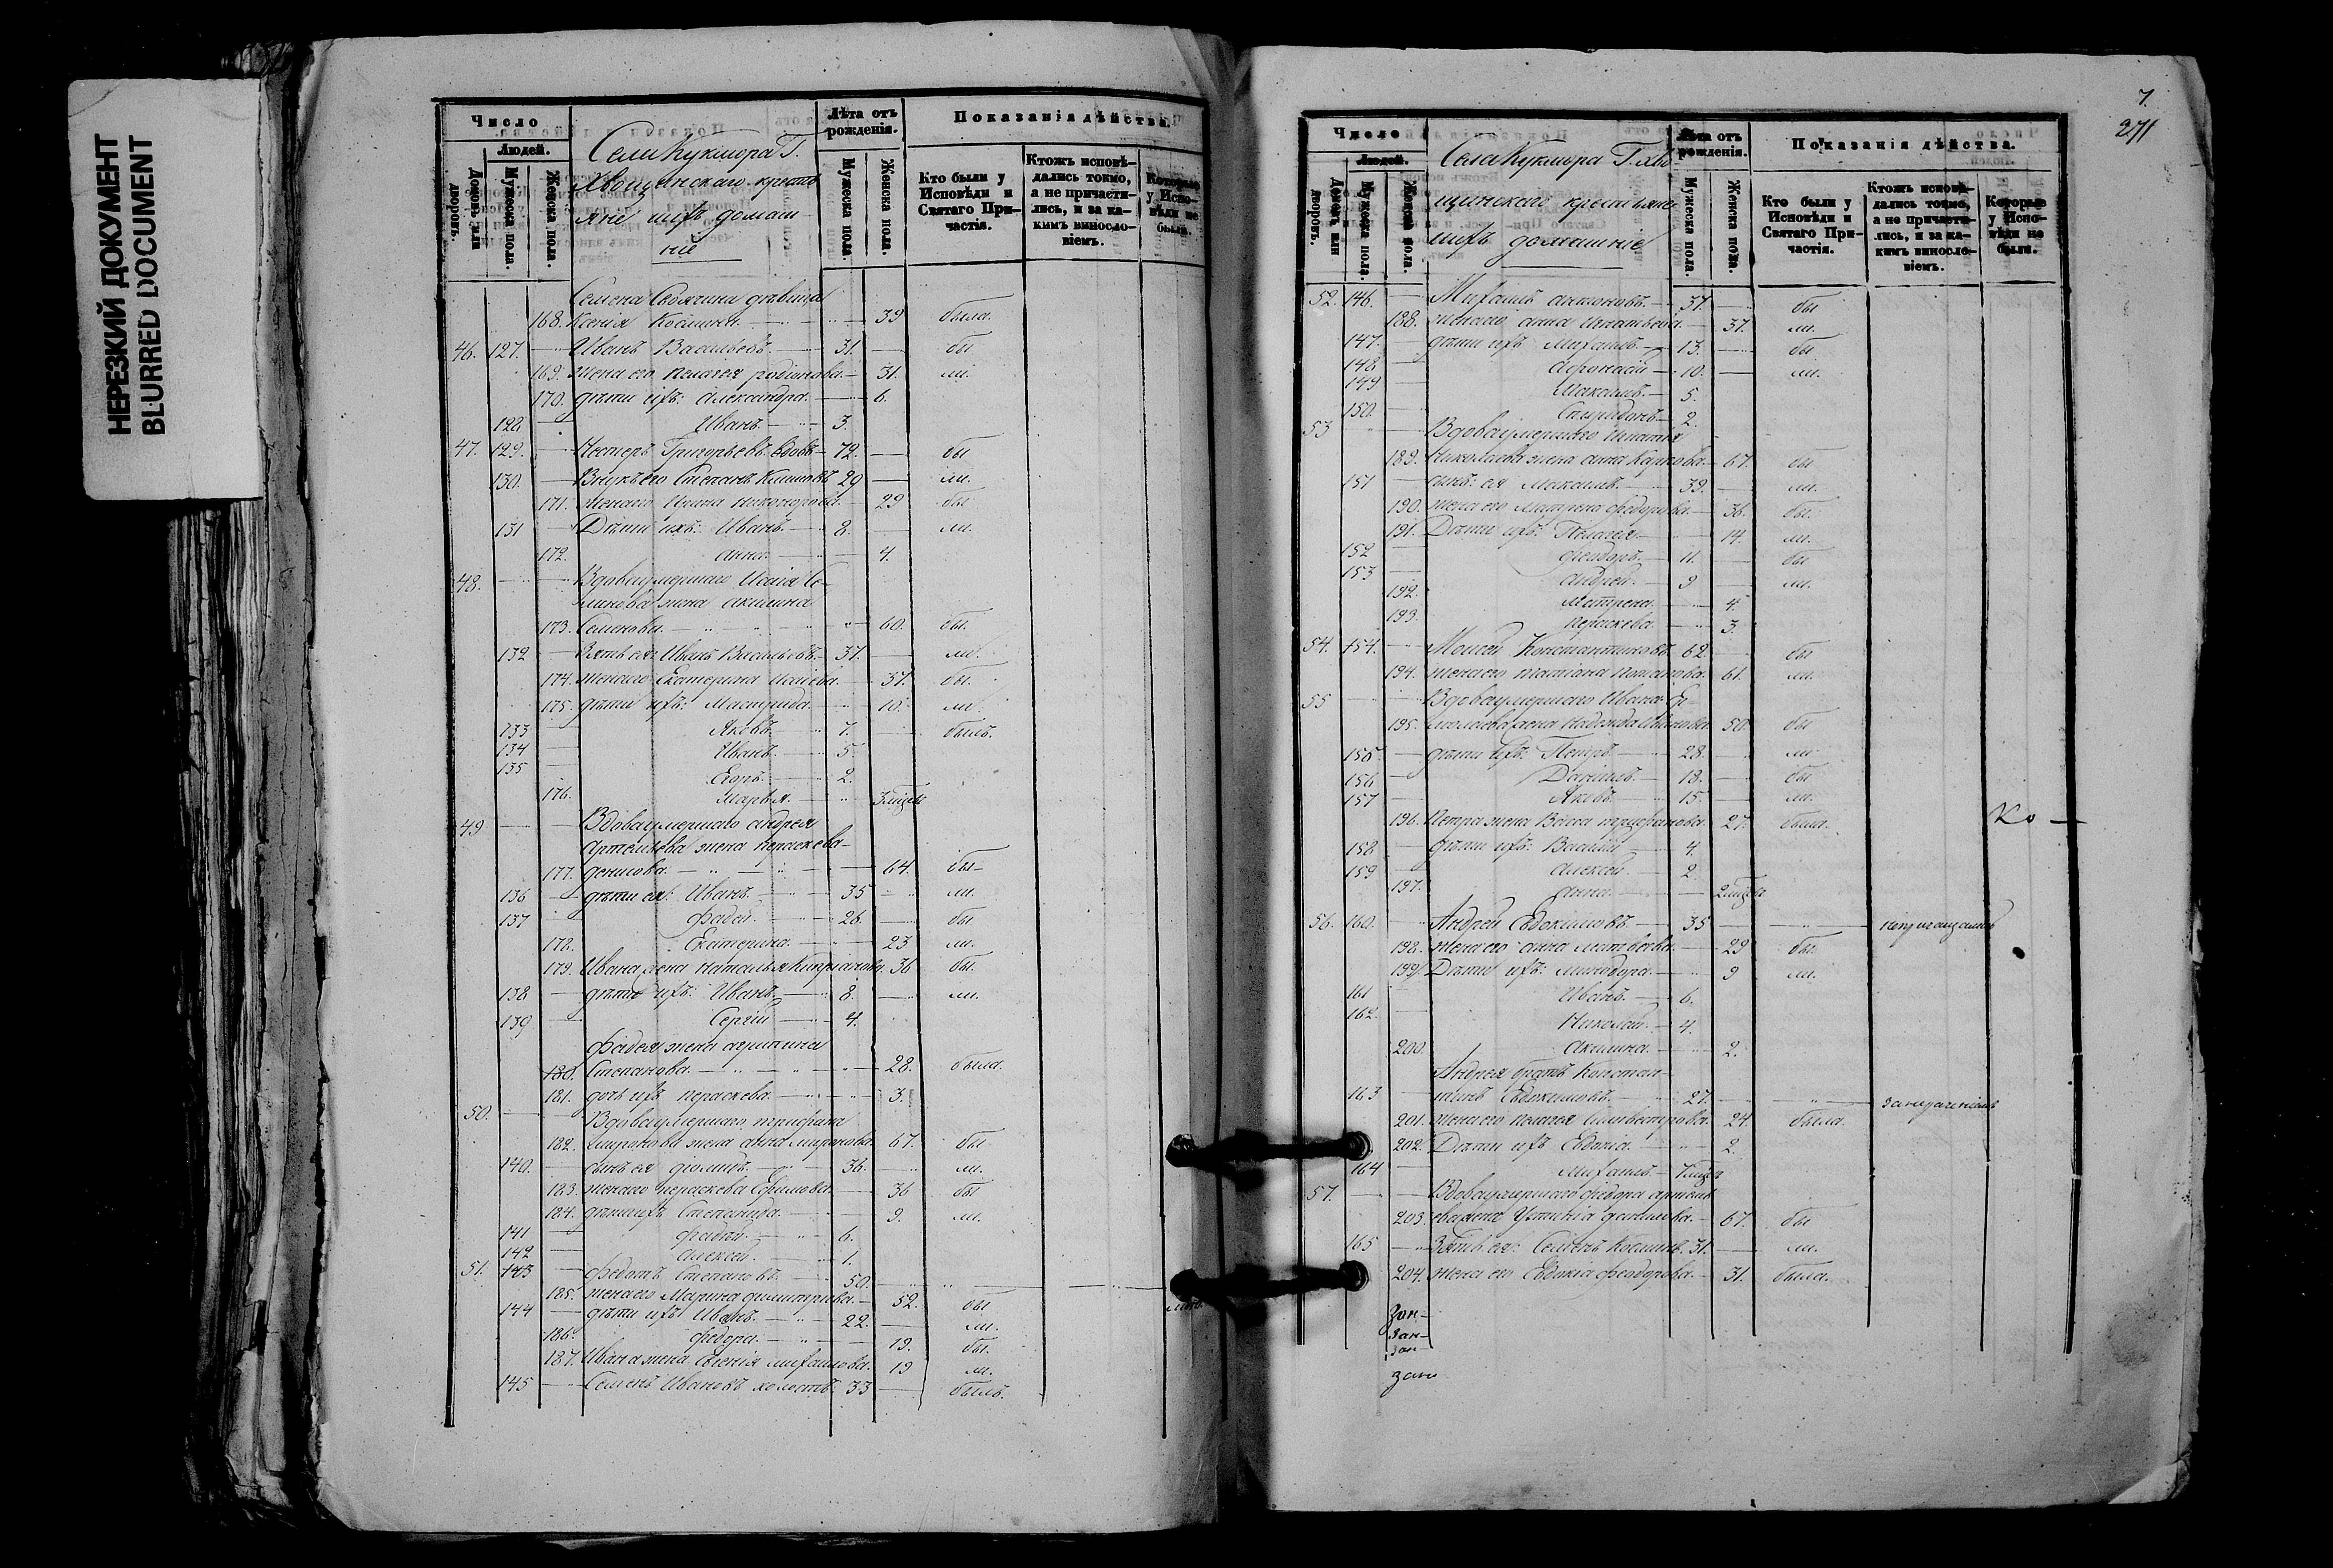 НЕРЕЗКИЙ ДОКУМЕНТ
BLURRED DOCUMENT
Число
Людей.
Домовъ или дворовъ.
Мужеска пола.
Женска пола.
Села Кукмора Г.
Хвощинскаго крестья
яне ихъ домаш
ніе
Лѣта отъ рожденія.
Мужеска пола.
Женска пола.
Показанія дѣйства.
Кто были у Исповѣди и Святаго Причастія.
Ктожъ исповѣдались токмо, а не причастились, и за какимъ винословіемъ.
Которые у Исповѣди не были.
Семена дѣвица
168. Ксенія Космина 39 была.
46. 127. Иванъ Васильевъ 31. бы
169. Жена его Пелагея Родіонова 31. ли.
170. дѣти ихъ: Александра 6.
128. Иванъ 3.
47. 129. Нестеръ Григорьевъ вдовъ 72. бы
130. Внукъ его Степанъ Климовъ 29 ли.
171. Жена его Ирина Никонорова 29 бы
131 Дѣти ихъ: Иванъ 8. ли.
172. Анна 4.
48. Вдова умершаго Исаія Се-
жена Акилина
173. Семенова. 60. бы.
132 Зять ея Иванъ Васильевъ 37. ли.
174. Жена его Екатерина Исаіева 37. бы.
175. дѣти ихъ: 10. ли.
133 Яковъ 7. былъ.
134 Иванъ 5.
135 Егоръ 2.
176. Марья
49 Вдова умершаго Андрея
Артемьева жена Пераскева
177. Денисова. 64. бы
136 дѣти ея: Иванъ 35 ли.
137 Фадей. 26. бы
178. Екатерина. 23 ли.
179. Ивана жена Наталья Кипріанова 36 бы.
138 дѣти ихъ: Иванъ 8. ли.
139 Сергій 4.
Фадея жена Агрипина
180. Степанова. 28. была.
181. дочь ихъ Пераскева. 3.
50. Вдова умершаго Трифона
182. жена Анна Миронова. 67. бы
140. сынъ ея 36. ли.
183. Жена его Пераскева Ефимова. 36 бы
184. дѣти ихъ Степанида. 9. ли.
141 Фадей. 6.
142 Алексей. 1.
51. 143 Федотъ Степановъ. 50.
185. Жена его Марина Димитріева. 52. бы
144 дѣти ихъ Иванъ. 22. ли.
186. Федора. 19. бы.
187. Ивана жена Михайлова. 19 ли.
145 Семенъ Ивановъ холостъ. 33 былъ.
7.
271
Число
Людей.
Домовъ или дворовъ.
Мужеска пола.
Женска пола.
Села Кукмора Г. Хво
щинскаго крестьяне
ихъ домашніе
Лѣта отъ рожденія.
Мужеска пола.
Женска пола.
Показанія дѣйства.
Кто были у Исповѣди и Святаго Причастія.
Ктожъ исповѣдались токмо, а не причастились, и за какимъ винословіемъ.
Которые у Исповѣди не были.
52. 146. Михаилъ Антоновъ. 37. бы
188. Жена его Анна Игнатьева. 37. ли.
147. дѣти ихъ Михаилъ. 13. бы
148 Афонасій 10. ли.
149 Максимъ. 5.
150. Спиридонъ. 2.
53 Вдова умершаго Игнатія
189. Николаева жена Анна Карпова. 67. бы
151 сынъ ея Максимъ. 39. ли.
190. Жена его Матрена Федорова. 36. бы.
191. Дѣти ихъ: Пелагея 14. ли.
152 Феодоръ. 11. бы
153 Андрей. 9 ли.
192. Матрена. 4.
193. Пераскева 3.
54. 154. Моисей Константиновъ. 62. бы
194. Жена его Татіана Потапова. 61. ли.
55 Вдова умершаго Ивана
195. жена Надежда 50. бы
155. дѣти ихъ: Петръ 28. ли
156 Даніилъ. 18. бы
157 Яковъ. 15. ли.
196. Петра жена Васса Трифонова. 27. была. Ко
158 дѣти ихъ: Василій 4.
159 Алексей. 2
197. Анна.
56. 160. Андрей Евдокимовъ. 35
198. Жена его Анна Матвѣева. 29 бы.
199. Дѣти ихъ: Минодора. 9 ли.
161 Иванъ. 6.
162. Николай. 4.
200. Акилина. 2.
Андрея братъ Констан-
163 тинъ Евдокимовъ. 27.
201. Жена его Пелагея Сильвестрова. 24. была.
202. Дѣти ихъ Евдокія. 2.
164 Михаилъ
57. Вдова умершаго Федора Артемь
203. ева жена Устинія Данилова. 67. бы
165 Зять ея: Семенъ Косминъ. 31. ли.
204. Жена его Евдокія Феодорова. 31. была.
Зан-
зан-
зан-
зан